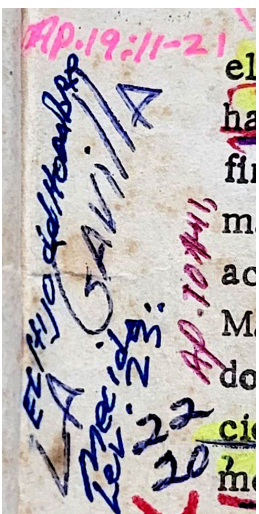 AP.19:11-21
EL Hijo del Hombre
LA GAVillA
Mecida.
Lev. 23:
22
20
el
ha
fin
ma
ac
Ma
do
cie
me